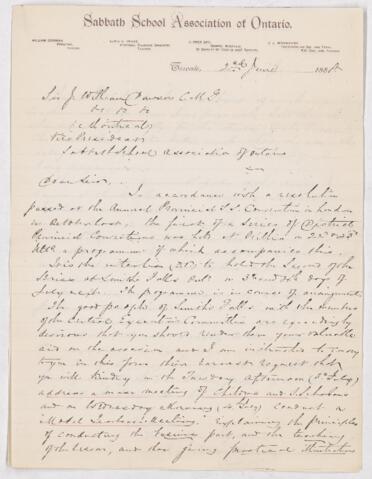 Sabbath School Association of Ontario.
Toronto, 2nd June 188
Sir J. William Dawson C.M.G.
Montreal
Vice President
Sabbath School Association of Ontario
Dear Sir,
In accordance with a resolution
passed at the Annual Provincial S.S. Convention in London
in October last, the first of a series of District
Provincial Conventions was held at Orillia on 22nd
a programme of which accompanies this.
It is the intention to hold the second of the
Series at Smiths Falls Ont. on 3rd and 4th day of
July next. The programme is in course of arrangement.
The good people of Smiths Falls with the members
of the Executive Committee are
desirous that you should render them your valuable
aid on the occasion and I am instructed to convey
to you in this form their earnest request that
you will kindly on the Tuesday afternoon (3 July)
address a mass meeting of and S. Scholars
and on Wednesday (4 July) conduct a
Model Teachers Meeting. Explaining the principles
of conducting the part, and the teaching
of the lesson, and thus giving practical illustrations